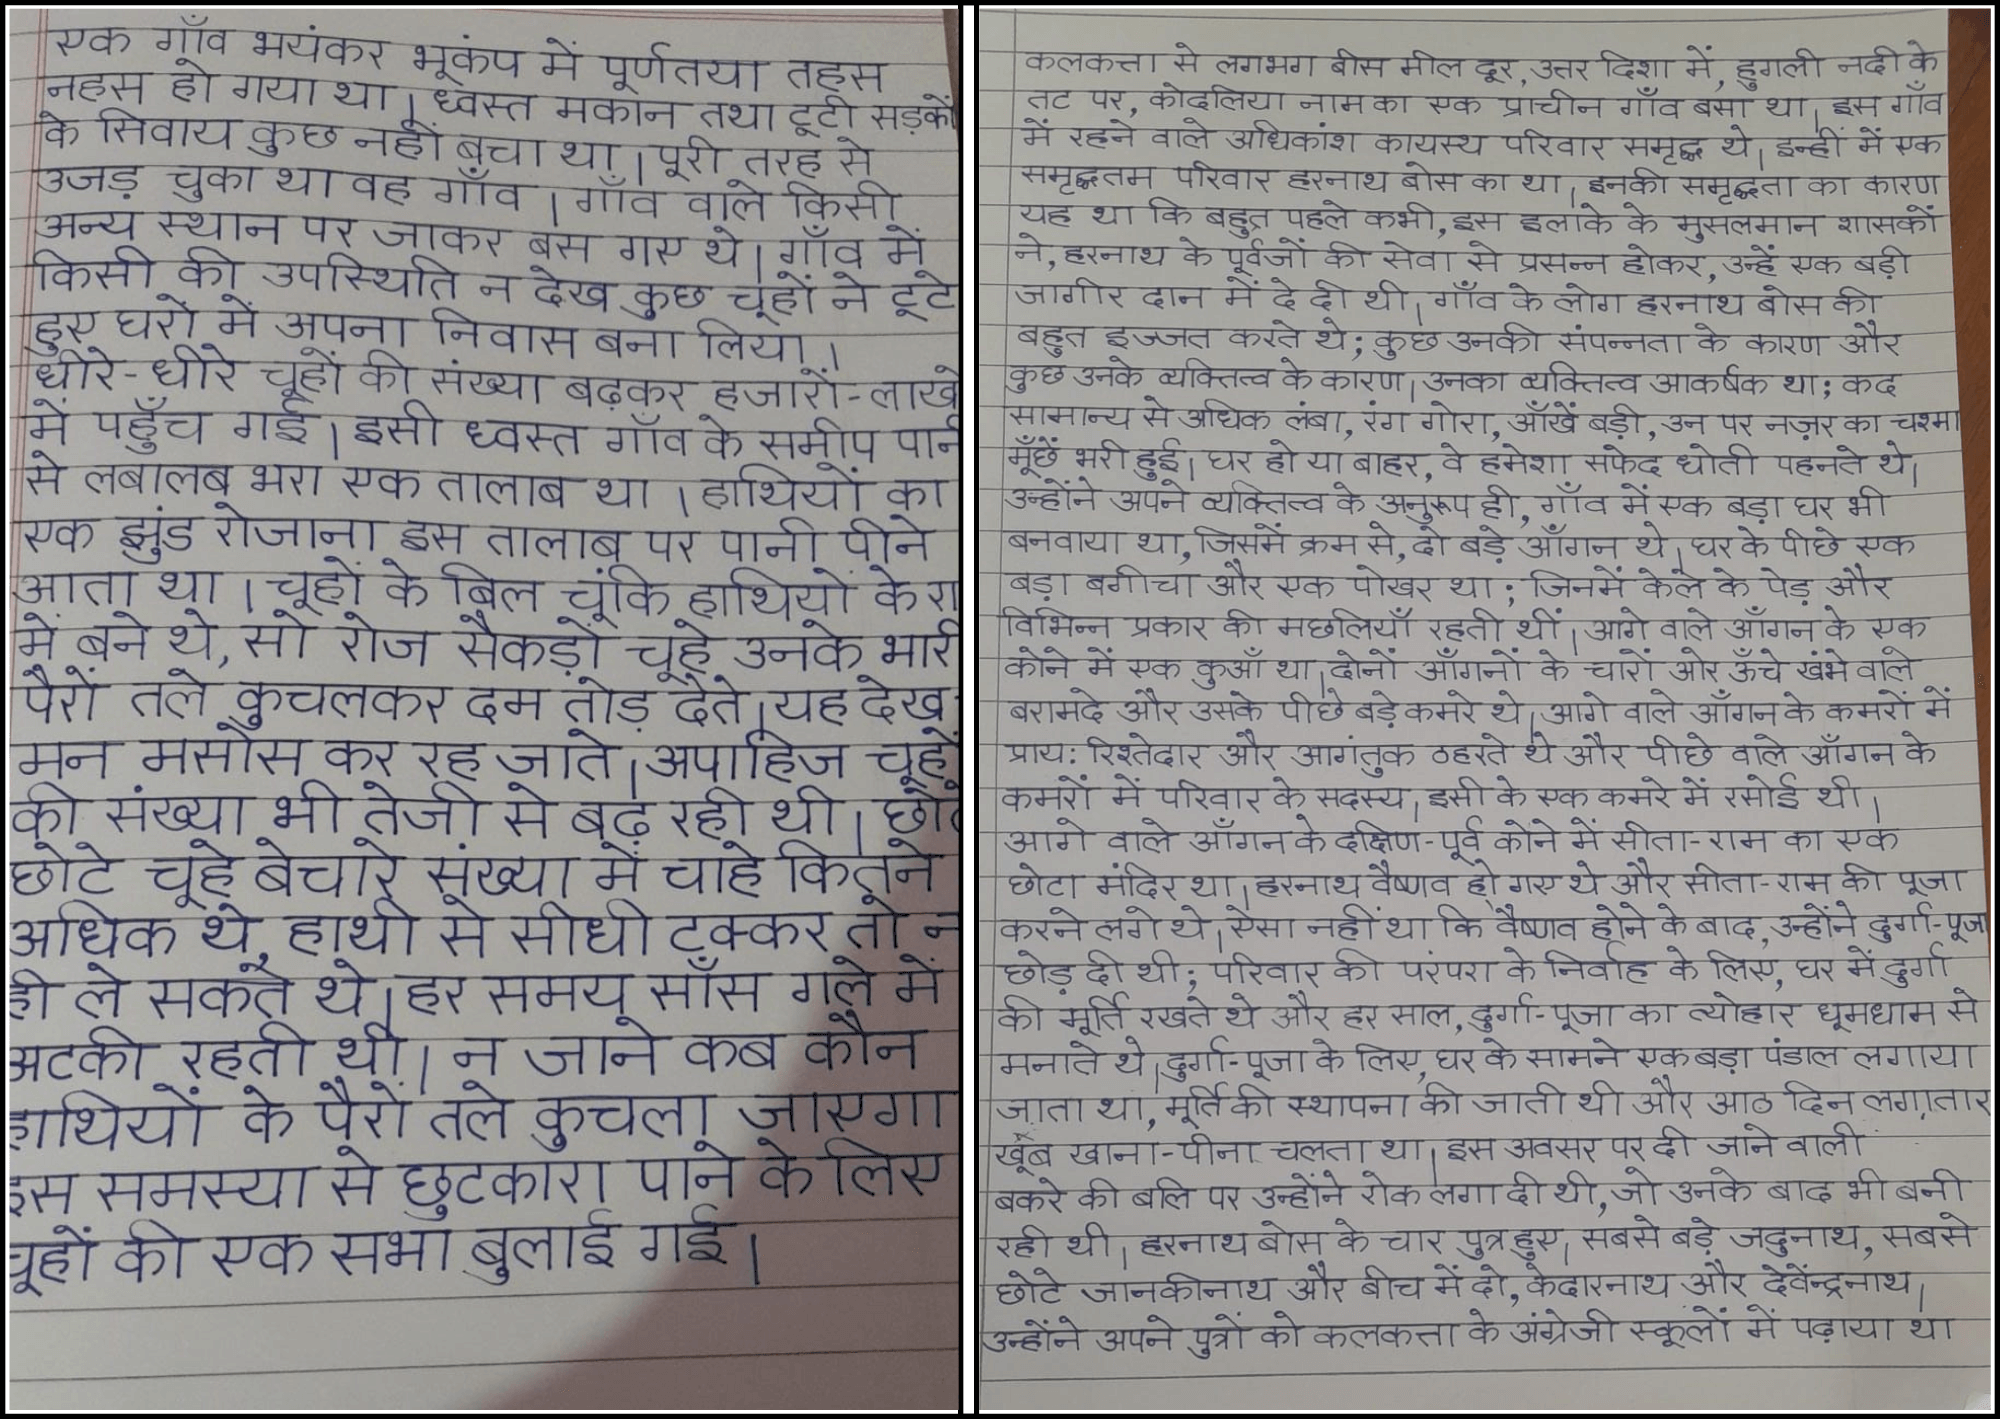 एक गाँव भयंकर भूकंप में पूर्णतया तहस
नहस हो गया था। ध्वस्त मकान तथा टूटी सड़कों
के सिवाय कुछ नहीं बचा था। पूरी तरह से
उजड़ चुका था वह गाँव। गाँव वाले किसी
अन्य स्थान पर जाकर बस गए थे। गाँव में
किसी की उपस्थिति न देख कुछ चूहों ने टूटे
हुए घरों में अपना निवास बना लिया।
धीरे-धीरे चूहों की संख्या बढ़कर हजारों-लाखो
में पहुँच गई। इसी ध्वस्त गाँव के समीप पान
से लबालब भरा एक तालाब था। हाथियों का
एक झुंड रोजाना इस तालाब पर पानी पीने
आता था। चूहों के बिल चूंकि हाथियों के रा
में बने थे, सो रोज सैकड़ों चूहे उनके भारी
पैरों तले कुचलकर दम तोड़ देते। यह देख
मन मसोस कर रह जाते। अपाहिज चूहों
की संख्या भी तेजी से बढ़ रही थी। छोटे
छोटे चूहे बेचारे संख्या में चाहे कितने
अधिक थे, हाथी से सीधी टक्कर तो न
ही ले सकते थे। हर समय साँस गले में
अटकी रहती थी। न जाने कब कौन
हाथियों के पैरों तले कुचला जाएगा
इस समस्या से छुटकारा पाने के लिए
चूहों की एक सभा बुलाई गई।
कलकत्ता से लगभग बीस मील दूर, उत्तर दिशा में, हुगली नदी के
तट पर, कोदलिया नाम का एक प्राचीन गाँव बसा था। इस गाँव
में रहने वाले अधिकांश कायस्थ परिवार समृद्ध थे। इन्हीं में एक
समृद्धतम परिवार हरनाथ बोस का था। इनकी समृद्धता का कारण
यह था कि बहुत पहले कभी, इस इलाके के मुसलमान शासकों
ने, हरनाथ के पूर्वजों की सेवा से प्रसन्न होकर, उन्हें एक बड़ी
जागीर दान में दे दी थी। गाँव के लोग हरनाथ बोस की
बहुत इज्जत करते थे; कुछ उनकी संपन्नता के कारण और
कुछ उनके व्यक्तित्व के कारण। उनका व्यक्तित्व आकर्षक था; कद
सामान्य से अधिक लंबा, रंग गोरा, आँखें बड़ी, उन पर नज़र का चश्मा
मूँछें भरी हुई। घर हो या बाहर, वे हमेशा सफेद धोती पहनते थे।
उन्होंने अपने व्यक्तित्व के अनुरूप ही, गाँव में एक बड़ा घर भी
बनवाया था, जिसमें क्रम से, दो बड़े आँगन थे। घर के पीछे एक
बड़ा बगीचा और एक पोखर था; जिनमें केले के पेड़ और
विभिन्न प्रकार की मछलियाँ रहती थीं। आगे वाले आँगन के एक
कोने में एक कुआँ था। दोनों आँगनों के चारों ओर ऊँचे खंभे वाले
बरामदे और उसके पीछे बड़े कमरे थे। आगे वाले आँगन के कमरों में
प्राय: रिश्तेदार और आगंतुक ठहरते थे और पीछे वाले आँगन के
कमरों में परिवार के सदस्य। इसी के एक कमरे में रसोई थी।
आगे वाले आँगन के दक्षिण-पूर्व कोने में सीता-राम का एक
छोटा मंदिर था। हरनाथ वैष्णव हो गए थे और सीता-राम की पूजा
करने लगे थे। ऐसा नहीं था कि वैष्णव होने के बाद, उन्होंने दुर्गा-पूजा
छोड़ दी थी; परिवार की परंपरा के निर्वाह के लिए, घर में दुर्गा
की मूर्ति रखते थे और हर साल, दुर्गा-पूजा का त्योहार धूमधाम से
मनाते थे। दुर्गा-पूजा के लिए, घर के सामने एक बड़ा पंडाल लगाया
जाता था, मूर्ति की स्थापना की जाती थी और आठ दिन लगातार
खूब खाना-पीना चलता था। इस अवसर पर दी जाने वाली
बकरे की बलि पर उन्होंने रोक लगा दी थी, जो उनके बाद भी बनी
रही थी। हरनाथ बोस के चार पुत्र हुए। सबसे बड़े जदुनाथ, सबसे
छोटे जानकीनाथ और बीच में दो, केदारनाथ और देवेंन्द्रनाथ।
उन्होंने अपने पुत्रों को कलकत्ता के अंग्रेजी स्कूलों में पढ़ाया था